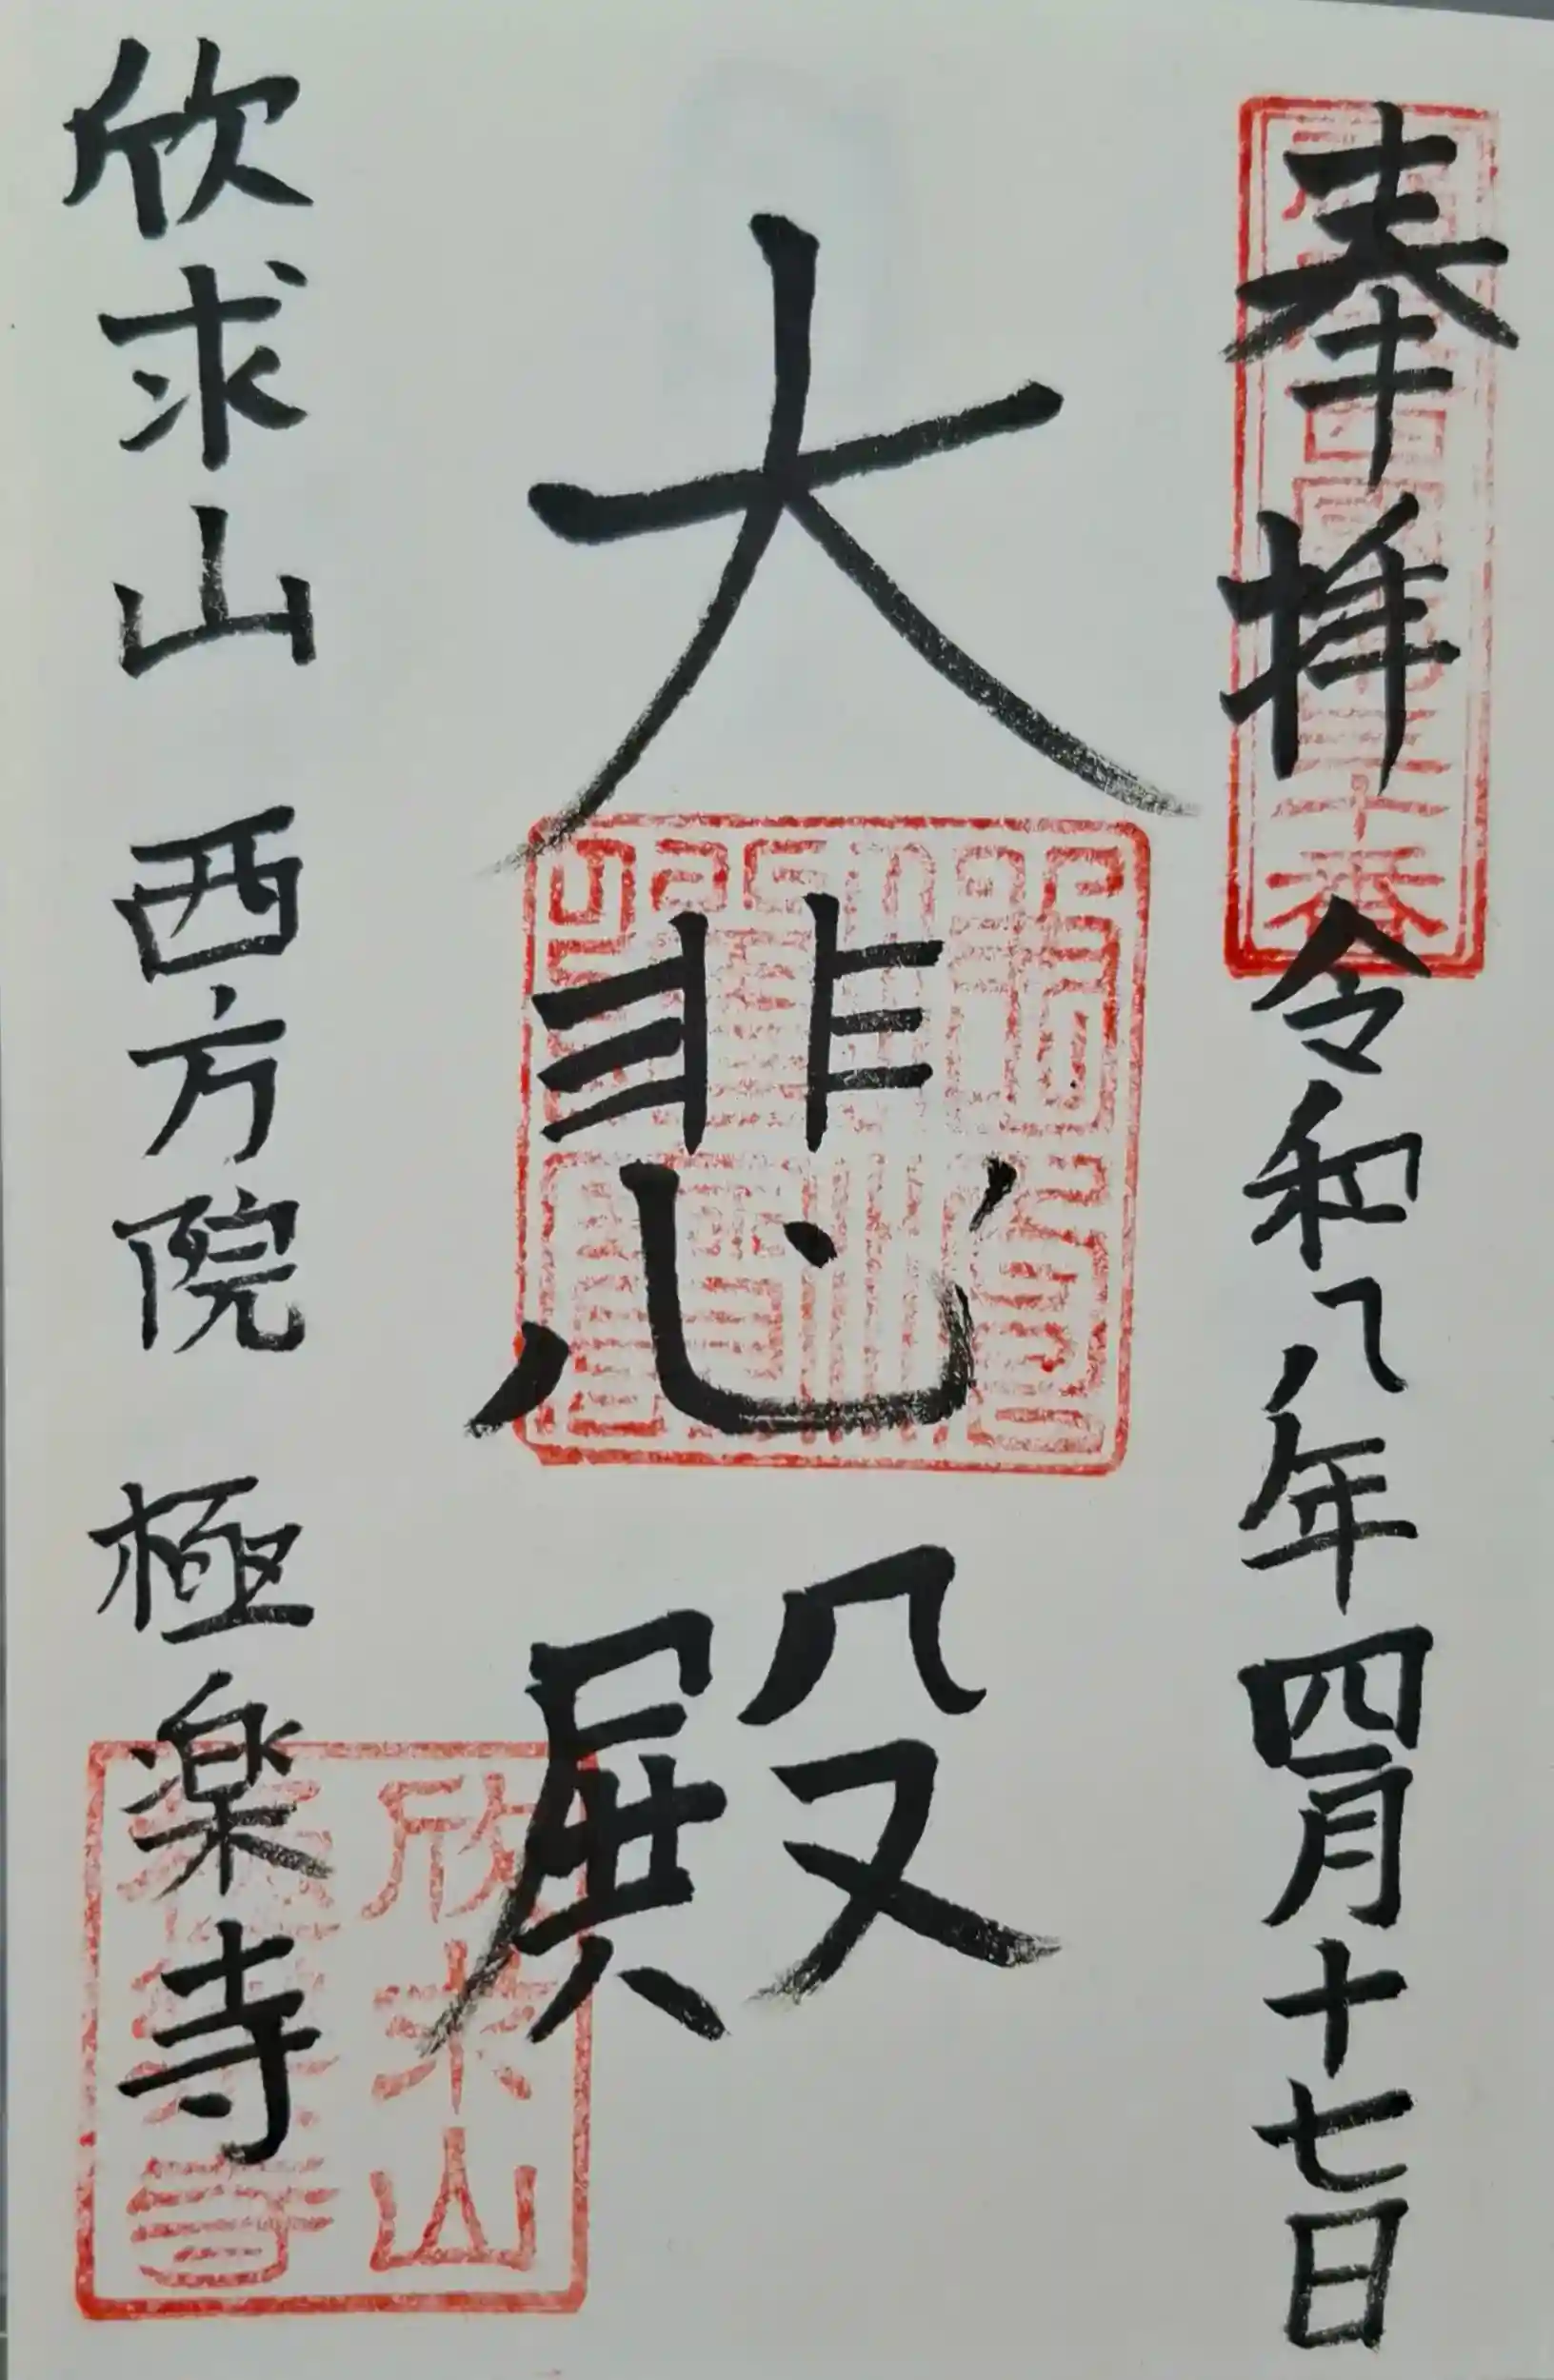 奉拝 令和八年四月十七日
大悲殿
欣求山 西方院 極楽寺
欣求山
極楽寺